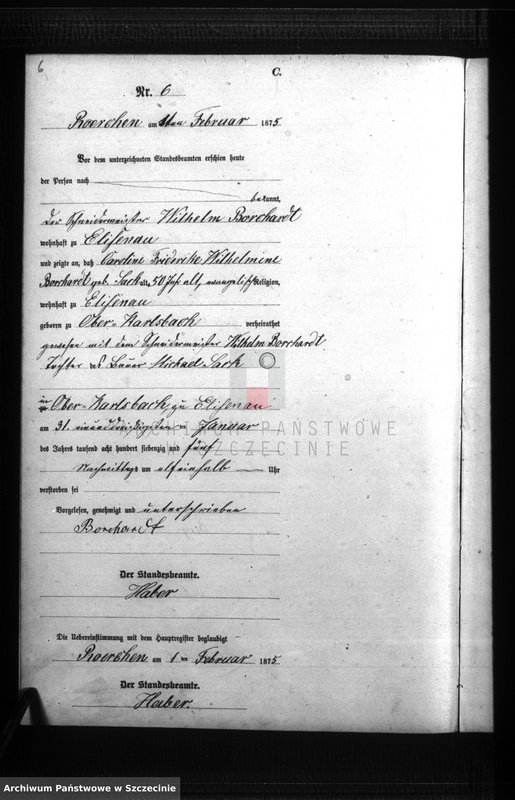 6
C.
Nr. 6
Roerchen am 1ten Februar 1875
Vor dem unterzeichneten Standesbeamten erschien heute
der Person nach
bekannt,
der Schneidermeister Wilhelm Borchardt
wohnhaft zu Elisenau
und zeigte an, daß Caroline Friedrike Wilhelmine
Borchardt geb. Sack, 50 Jahr alt, evangelisch Religion,
wohnhaft zu Elisenau
geboren zu Ober-Karlsbach verheirathet
gewesen mit dem Schneidermeister Wilhelm Borchardt
Tochter des Bauer Michael Sack
in
Ober-Karlsbach, zu Elisenau
am 31. einunddreißigsten Januar
des Jahres tausend acht hundert siebenzig und fünf
Nachmittags um elfeinhalb Uhr
verstorben sei
Vorgelesen, genehmigt und unterschrieben
Borchardt
Der Standesbeamte.
Haber
Die Uebereinstimmung mit dem Hauptregister beglaubigt
Roerchen am 1 ten Februar 1875
Der Standesbeamte.
Haber.
ARCHIWUM PAŃSTWOWE
W SZCZECINIE
Archiwum Państwowe w Szczecinie